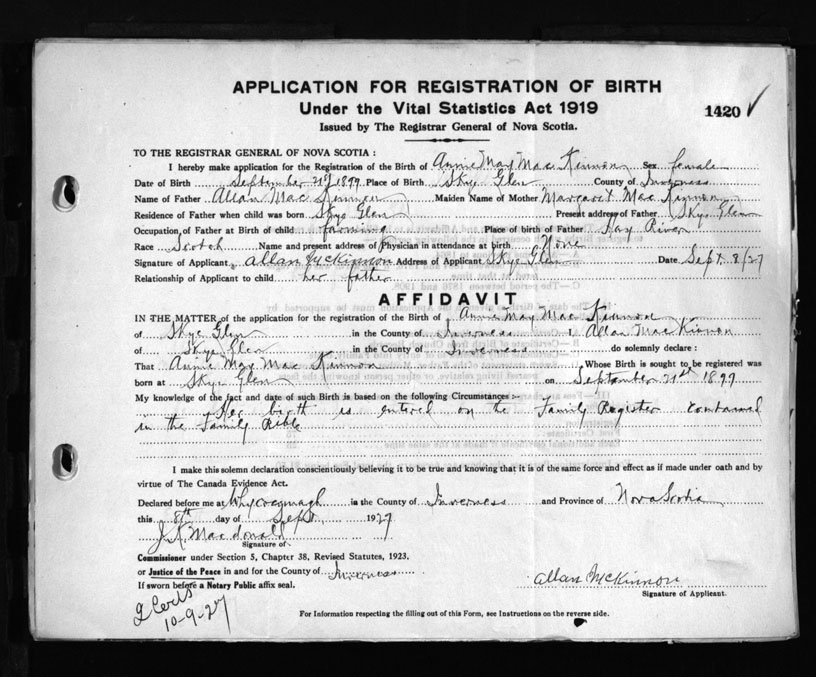 APPLICATION FOR REGISTRATION OF BIRTH
Under the Vital Statistics Act 1919
1420
Issued by The Registrar General of Nova Scotia.
TO THE REGISTRAR GENERAL OF NOVA SCOTIA :
I hereby make application for the Registration of the Birth of Annie May Mac Kinnon Sex female
Date of Birth September 21st 1899 Place of Birth Skye Glen County of Inverness
Name of Father Allan Mac Kinnon Maiden Name of Mother Margaret Mac Kinnon
Residence of Father when child was born Skye Glen Present address of Father Skye Glen
Occupation of Father at Birth of child farming Place of birth of Father Hay River
Race Scotch Name and present address of Physician in attendance at birth None
Signature of Applicant Allan McKinnon Address of Applicant Skye Glen Date Sept. 8/27
Relationship of Applicant to child her father
AFFIDAVIT
IN THE MATTER of the application for the registration of the Birth of Annie May Mac Kinnon
of Skye Glen in the County of Inverness I, Allan MacKinnon
of Skye Glen in the County of Inverness do solemnly declare :
That Annie May Mac Kinnon Whose Birth is sought to be registered was
born at Skye Glen on September 21st 1899
My knowledge of the fact and date of such Birth is based on the following Circumstances :-
Her birth is entered on the Family Register contained
in the Family Bible
I make this solemn declaration conscientiously believing it to be true and knowing that it is of the same force and effect as if made under oath and by
virtue of The Canada Evidence Act.
Declared before me at Whycocomagh in the County of Inverness and Province of Nova Scotia
this 8th day of Sept. 1927
J. K. Macdonald
Signature of
Commissioner under Section 5, Chapter 38, Revised Statutes, 1923,
or Justice of the Peace in and for the County of Inverness
If sworn before a Notary Public affix seal.
Allan McKinnon
Signature of Applicant.
2 Certs
10-9-27
For Information respecting the filling out of this Form, see Instructions on the reverse side.